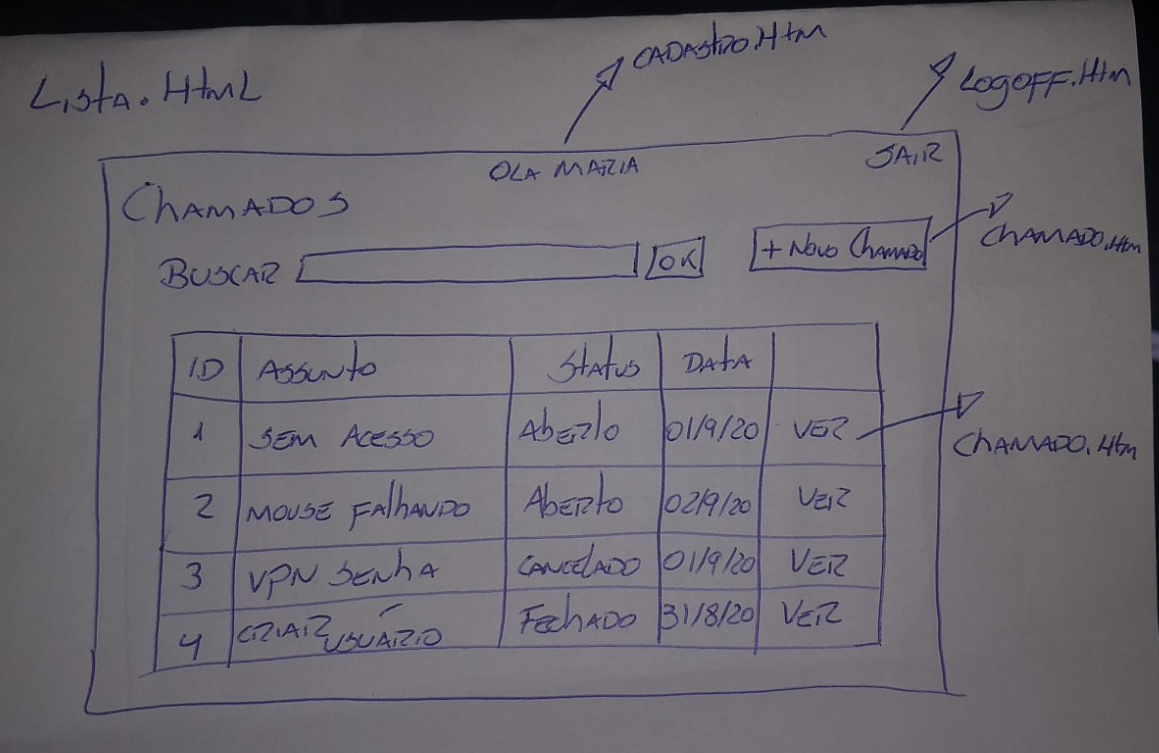 Lista.HtmL
CADAStro.Htm
LogOFF.Htm
OLA MARIA
SAIR
ChAMADOS
BUSCAR
OK
+ Novo ChAMADO
ChAMADO.Htm
ID ASSUNTO StAtUS DAtA
1 SEM ACESSO AbERtO 01/9/20 VER
ChAMADO.Htm
2 MOUSE FAlhANDO AbERtO 02/9/20 VER
3 VPN SENhA CANCELADO 01/9/20 VER
4 CRIAR USUÁRIO FEchADO 31/8/20 VER